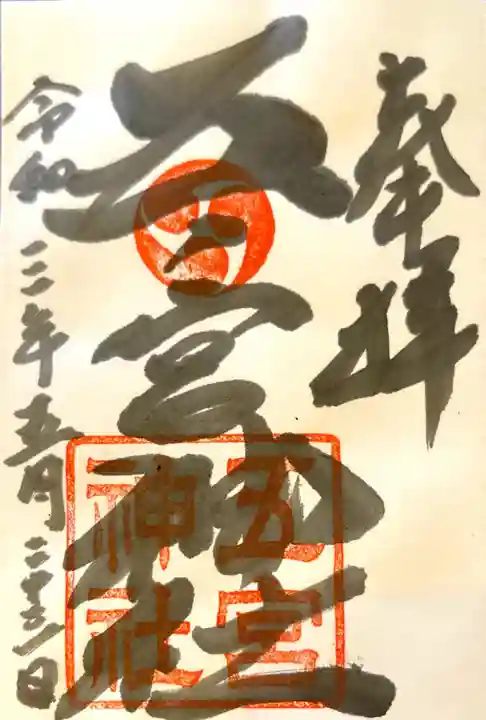 奉拝
五宮神社
五宮
神社
令和三年五月二十三日